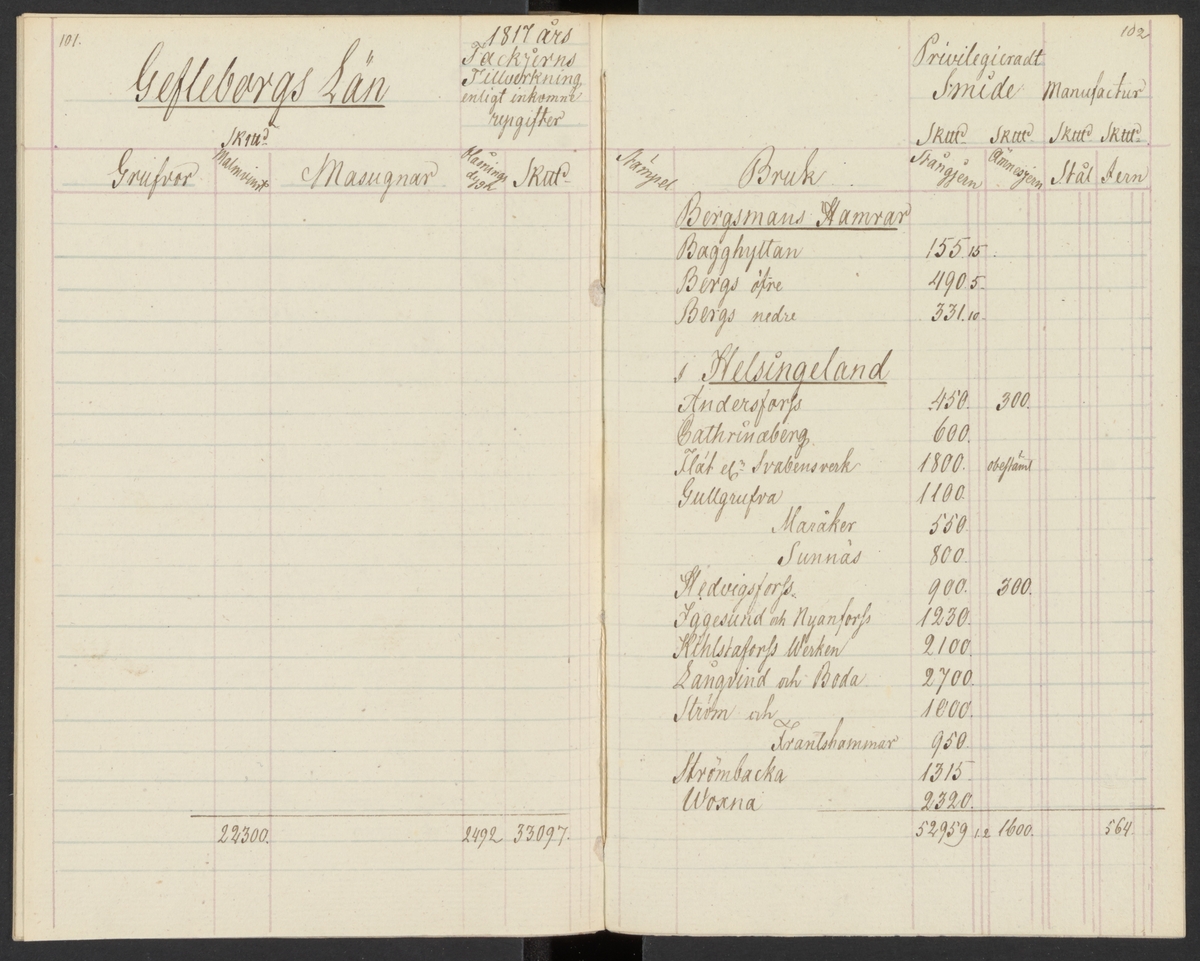 101.
Gefleborgs Län
1817 års
Tackjerns
Tillverkning
enligt inkomne
uppgifter
Skttd
Grufvor
Malmvinst
Masugnar
Blåsnings
dygn
Skttd
22300.
2492
33097.
102
Privilegieradt
Smide Manufactur
Skttd Skttd Skttd Skttd
Stämpel
Bruk
Stångjern Ämnesjern Stål Jern
Bergsmans Hamrar
Bagghyttan 155. 15.
Bergs öfre 490. 5.
Bergs nedre 331. 10.
i Helsingeland
Andersforss 450. 300.
Cathrineberg 600.
Flåt elr Svabensverk 1800. obestämt
Gullgrufva 1100.
Maråker 550.
Sunnäs 800.
Hedvigsforss 900. 300.
Iggesund och Nyanforss 1230.
Kihlstaforss Werken 2100.
Långvind och Boda 2700.
Ström och 1000.
Frantshammar 950.
Strömbacka 1315.
Woxna 2320.
52959 12 1600. 564.